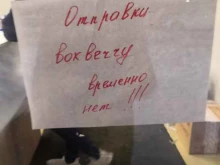 Отправки
вок веччу
временно
нет !!!